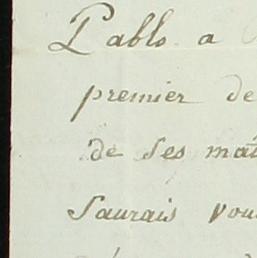 Pablo a
premier de
de ses
Saurais vou